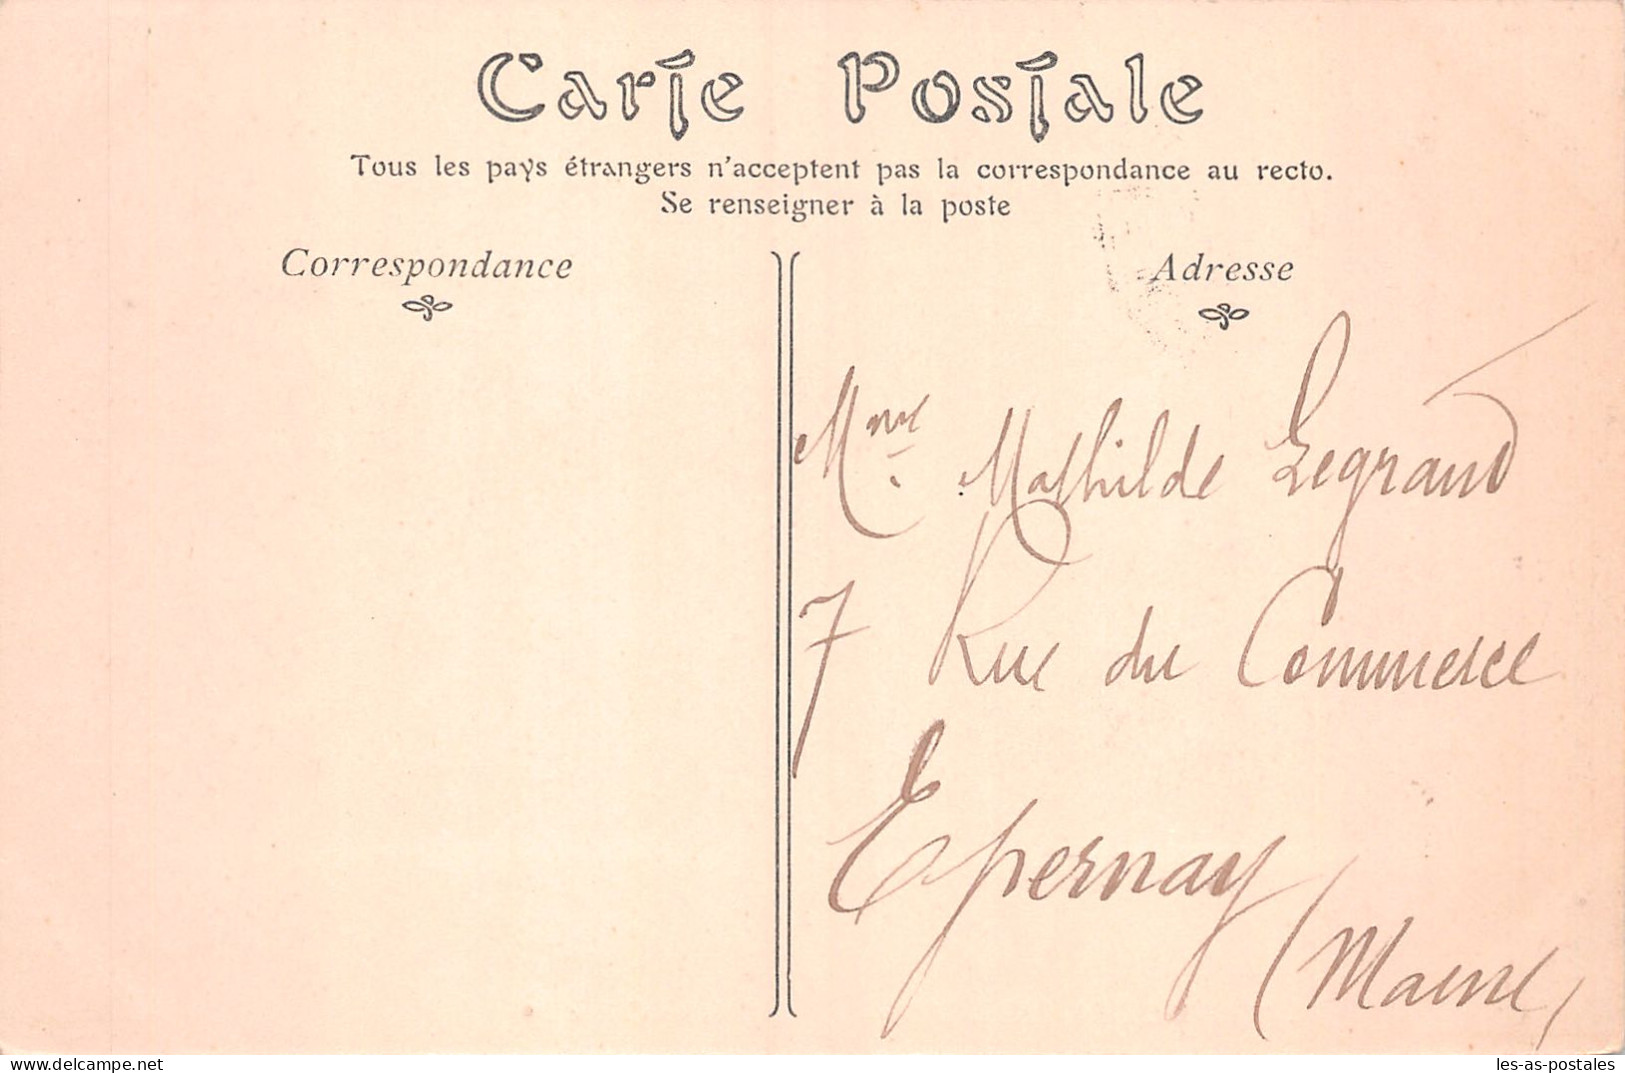 Carte Postale
Tous les pays étrangers n'acceptent pas la correspondance au recto.
Se renseigner à la poste
Correspondance
Adresse
Mme. Mathilde Legrand
7 Rue du Commerce
Epernay
(Marne)
delcampe.net
les-as-postales